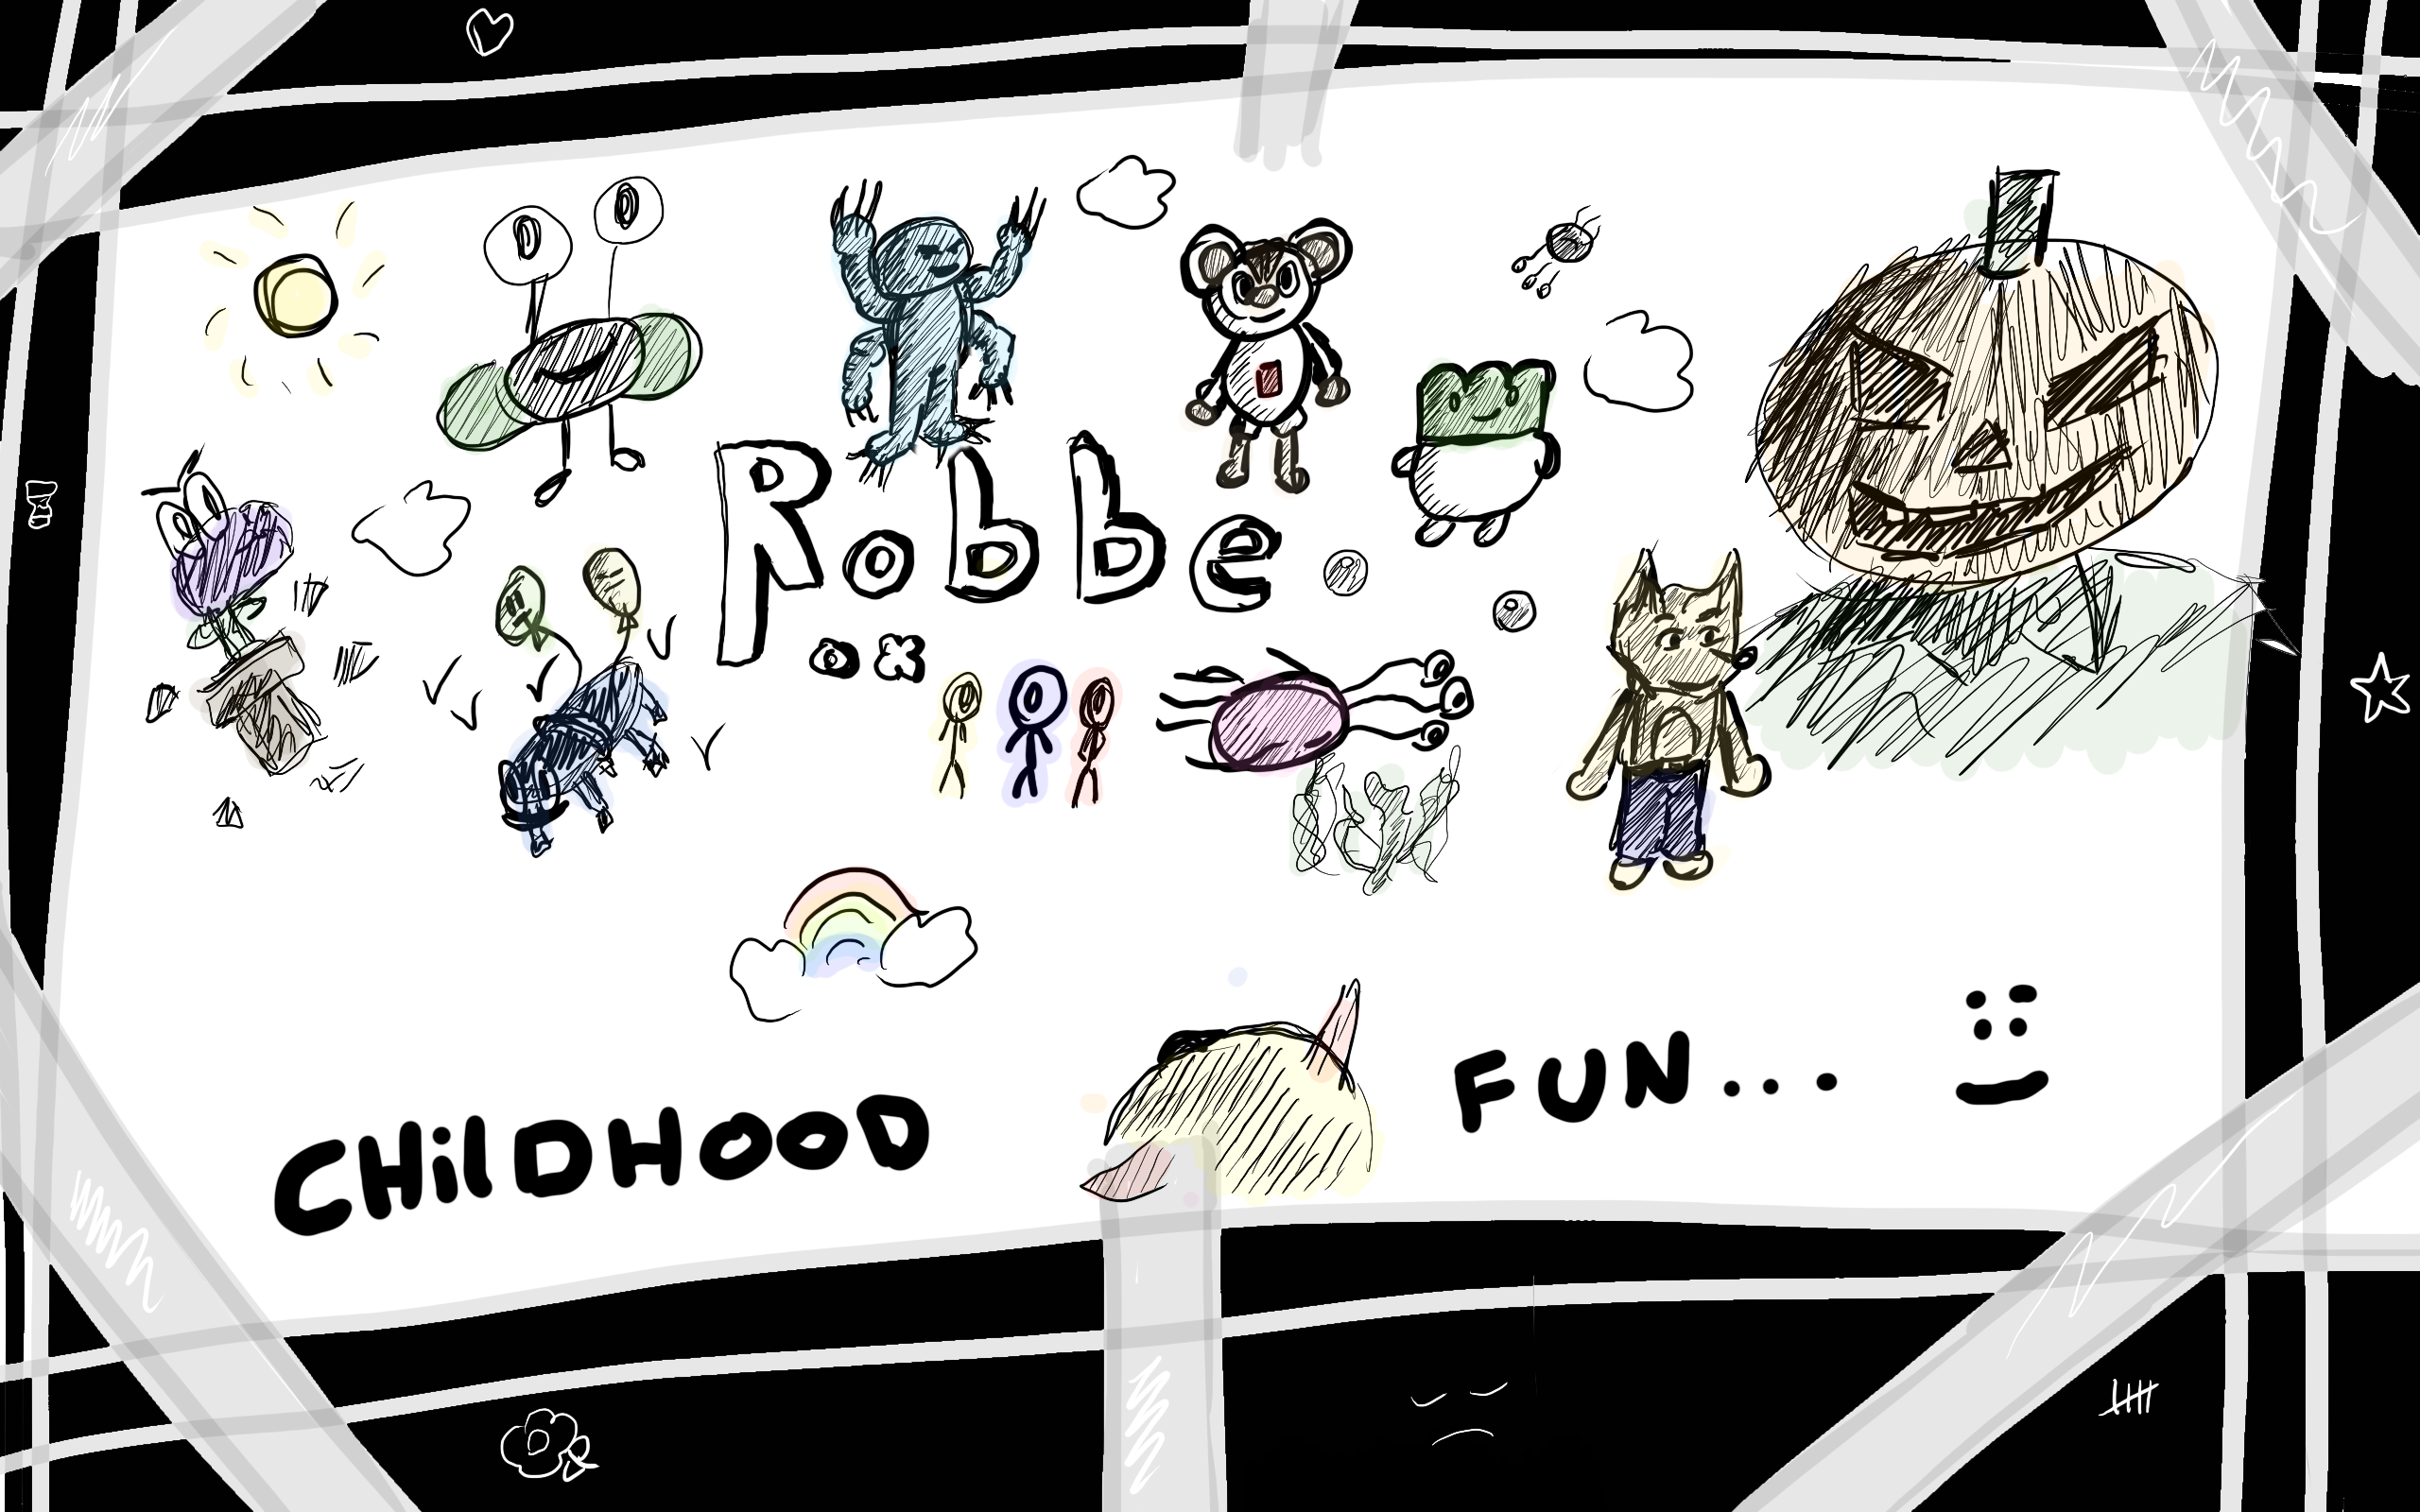 Robbe
CHilDHOOD
FUN...